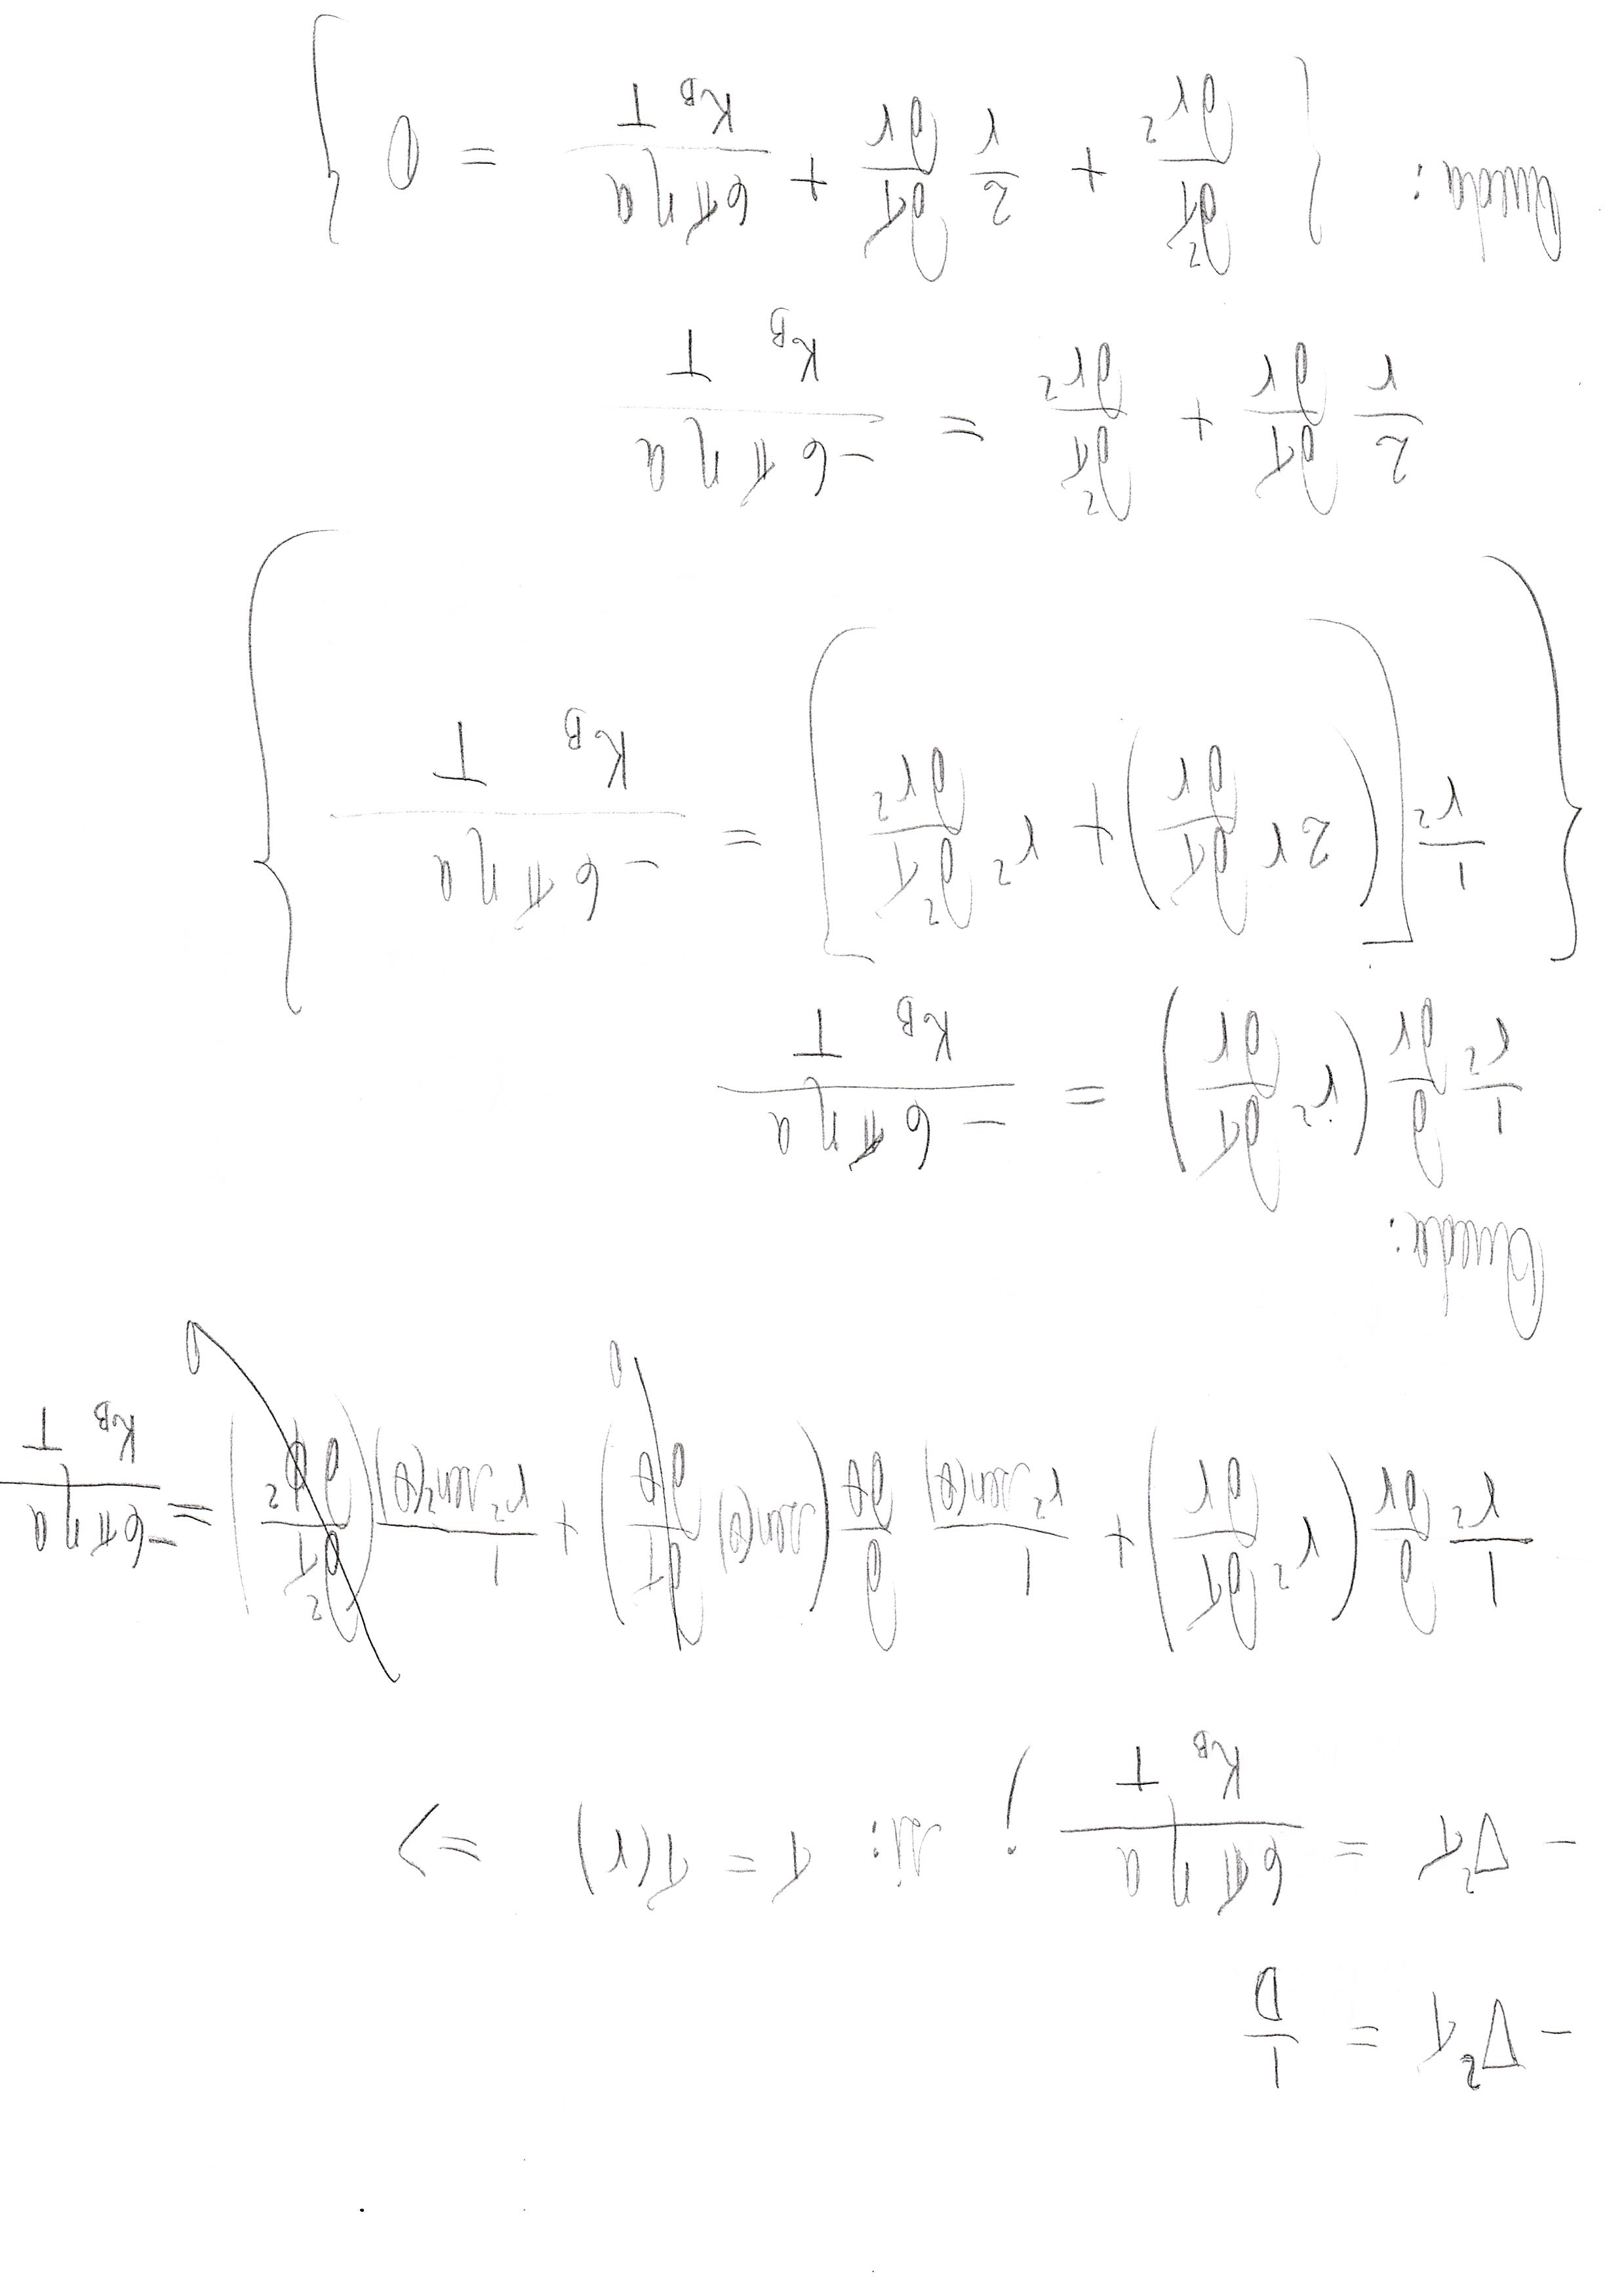 -∇²τ = 1/D
-∇²τ = 6πηa / K_B T ; si: τ = τ(r) =>
1/r² ∂/∂r (r² ∂τ/∂r) + 1/(r² sen(θ)) ∂/∂θ (sen(θ) ∂τ/∂θ) + 1/(r² sen²(θ)) (∂²τ/∂φ²) = -6πηa / K_B T
0 0
Queda:
1/r² ∂/∂r (r² ∂τ/∂r) = -6πηa / K_B T
{ 1/r² [ (2r ∂τ/∂r) + r² ∂²τ/∂r² ] = -6πηa / K_B T }
2/r ∂τ/∂r + ∂²τ/∂r² = -6πηa / K_B T
Queda: { ∂²τ/∂r² + 2/r ∂τ/∂r + 6πηa / K_B T = 0 }